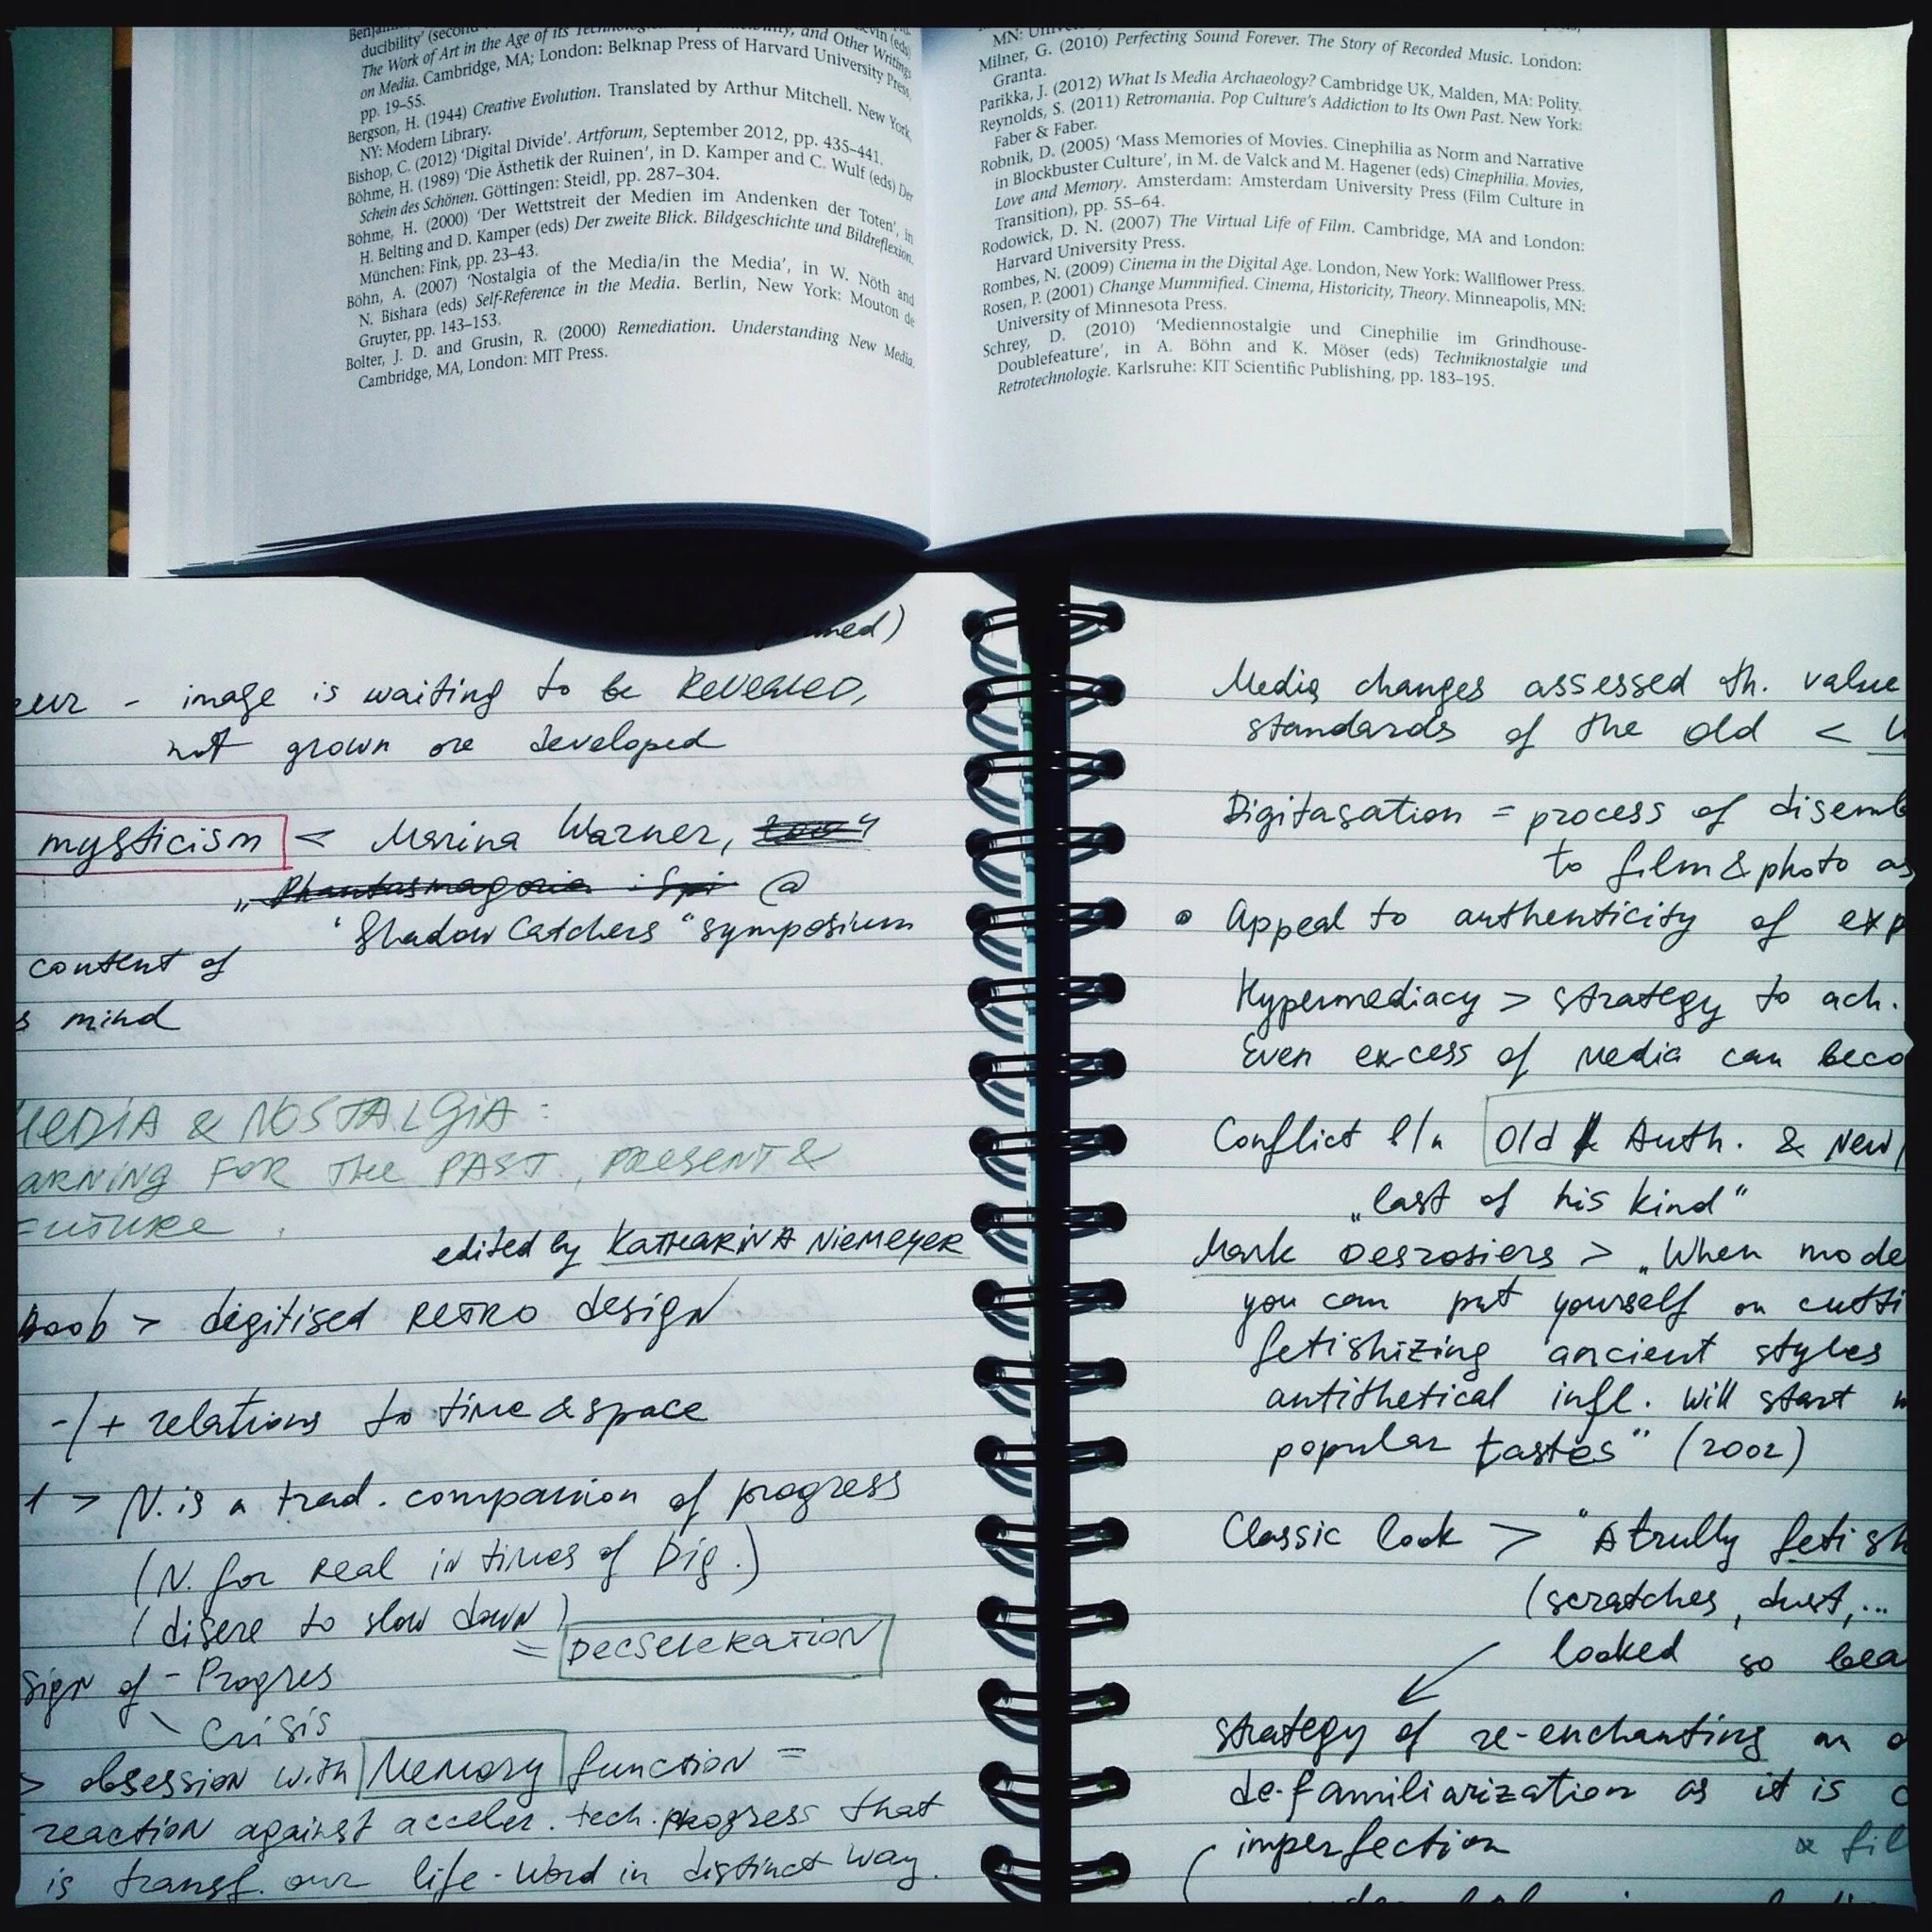 ducibility' (second
The Work of Art in the Age of its and Other Writings
on Media. Cambridge, MA; London: Belknap Press of Harvard University Press,
pp. 19–55.
Bergson, H. (1944) Creative Evolution. Translated by Arthur Mitchell. New York,
NY: Modern Library.
Bishop, C. (2012) 'Digital Divide'. Artforum, September 2012, pp. 435–441.
Böhme, H. (1989) 'Die Ästhetik der Ruinen', in D. Kamper and C. Wulf (eds) Der
Schein des Schönen. Göttingen: Steidl, pp. 287–304.
Böhme, H. (2000) 'Der Wettstreit der Medien im Andenken der Toten', in
H. Belting and D. Kamper (eds) Der zweite Blick. Bildgeschichte und Bildreflexion.
München: Fink, pp. 23–43.
Böhn, A. (2007) 'Nostalgia of the Media/in the Media', in W. Nöth and
N. Bishara (eds) Self-Reference in the Media. Berlin, New York: Mouton de
Gruyter, pp. 143–153.
Bolter, J. D. and Grusin, R. (2000) Remediation. Understanding New Media.
Cambridge, MA, London: MIT Press.
MN:
Milner, G. (2010) Perfecting Sound Forever. The Story of Recorded Music. London:
Granta.
Parikka, J. (2012) What Is Media Archaeology? Cambridge UK, Malden, MA: Polity.
Reynolds, S. (2011) Retromania. Pop Culture's Addiction to Its Own Past. New York:
Faber & Faber.
Robnik, D. (2005) 'Mass Memories of Movies. Cinephilia as Norm and Narrative
in Blockbuster Culture', in M. de Valck and M. Hagener (eds) Cinephilia. Movies,
Love and Memory. Amsterdam: Amsterdam University Press (Film Culture in
Transition), pp. 55–64.
Rodowick, D. N. (2007) The Virtual Life of Film. Cambridge, MA and London:
Harvard University Press.
Rombes, N. (2009) Cinema in the Digital Age. London, New York: Wallflower Press.
Rosen, P. (2001) Change Mummified. Cinema, Historicity, Theory. Minneapolis, MN:
University of Minnesota Press.
Schrey, D. (2010) 'Mediennostalgie und Cinephilie im Grindhouse-
Doublefeature', in A. Böhn and K. Möser (eds) Techniknostalgie und
Retrotechnologie. Karlsruhe: KIT Scientific Publishing, pp. 183–195.
- image is waiting to be Revealed,
not grown or developed
mysticism < Marina Warner,
„Phantasmagoria: @
'Shadow Catchers" symposium
content of
mind
MEDIA & NOSTALGIA:
ARNING FOR THE PAST, PRESENT &
FUTURE.
edited by KATHARINA NIEMEYER
> digitised RETRO design
-/+ relations to time & space
1 > N. is a trad. companion of progress
(N. for real in times of Dig.)
(disere to slow down)
= DECSELERATION
Sign of - Progres
\ Crisis
> obsession with Memory function =
reaction against acceler. tech. progress that
is transf. our life-word in distinct way.
Media changes assessed th. value
standards of the old <
Digitasation = process of disemb
to film & photo as
• Appeal to authenticity of exp
Hypermediacy > strategy to ach.
Even excess of media can beco
Conflict b/n Old Auth. & New
„last of his kind"
Mark Desrosiers > „When mode
you can put yourself on cutti
fetishizing ancient styles
antithetical infl. will start
popular tastes" (2002)
Classic look > "A trully fetish
(scratches, dust,...
looked so bea
strategy of re-enchanting an o
de-familiarization as it is
imperfection